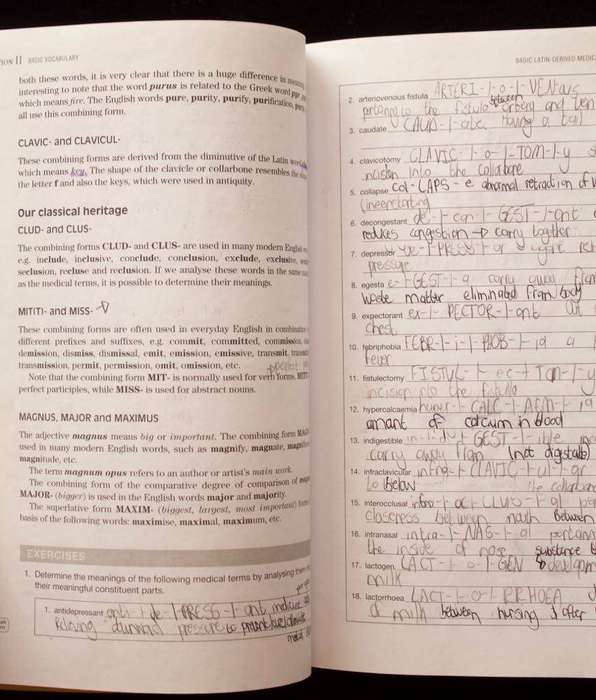 ION II BASIC VOCABULARY
both these words, it is very clear that there is a huge difference in
interesting to note that the word purus is related to the Greek word
which means fire. The English words pure, purity, purify, purification,
all use this combining form.
CLAVIC- and CLAVICUL-
These combining forms are derived from the diminutive of the Latin
which means key. The shape of the clavicle or collarbone resembles the
the letter f and also the keys, which were used in antiquity.
Our classical heritage
CLUD- and CLUS-
The combining forms CLUD- and CLUS- are used in many modern English
e.g. include, inclusive, conclude, conclusion, exclude, exclusive,
seclusion, recluse and reclusion. If we analyse these words in the same
as the medical terms, it is possible to determine their meanings.
MIT(T)- and MISS-
These combining forms are often used in everyday English in combination
different prefixes and suffixes, e.g. commit, committed, commission,
demission, dismiss, dismissal, emit, emission, emissive, transmit,
transmission, permit, permission, omit, omission, etc.
Note that the combining form MIT- is normally used for verb forms,
perfect participles, while MISS- is used for abstract nouns.
MAGNUS, MAJOR and MAXIMUS
The adjective magnus means big or important. The combining form
used in many modern English words, such as magnify, magnate,
magnitude, etc.
The term magnum opus refers to an author or artist's main work.
The combining form of the comparative degree of comparison of
MAJOR- (bigger) is used in the English words major and majority.
The superlative form MAXIM- (biggest, largest, most important)
basis of the following words: maximise, maximal, maximum, etc.
EXERCISES
1. Determine the meanings of the following medical terms by analysing
their meaningful constituent parts.
1. antidepressant anti-|-de-|-PRESS-|-ant medicine
Relieving pressure to
BASIC LATIN-DERIVED MEDIC
2. arteriovenous fistula ARTERI-|-o-|-VENous
pertaining to the fistula between artery and
3. caudate CAUD-|-ate having a tail
4. clavicotomy CLAVIC-|-o-|-TOM-|-y
incision into the collarbone
5. collapse col-|-CAPS-e abnormal retraction of
6. decongestant de-|-con-|-GEST-|-ant
reduces congestion → carry together
7. depressor
pressure
8. egesta e-|-GEST-|-a carry away from
waste matter eliminated from body
9. expectorant ex-|-PECTOR-|-ant
chest
10. febriphobia FEBR-|-i-|-PHOB-|-ia a
fever
11. fistulectomy FISTUL-|-ec-|-Tom-|-y
incision into the fistula
12. hypercalcaemia hyper-|-CALC-|-AEM-|-ia
amant of calcium in blood
13. indigestible in-|-di-|-GEST-|-ible
carry away from (not digestable)
14. infraclavicular infra-|-CLAVIC-|-ul-|-ar
to below the collarbone
15. interocclusal
closeness between mouth between
16. intranasal intra-|-NAS-|-al pertaining
the inside of nose substance
17. lactogen LACT-|-o-|-GEN development
milk
18. lactorrhoea LACT-|-o-|-RRHOEA
of milk between nursing & after